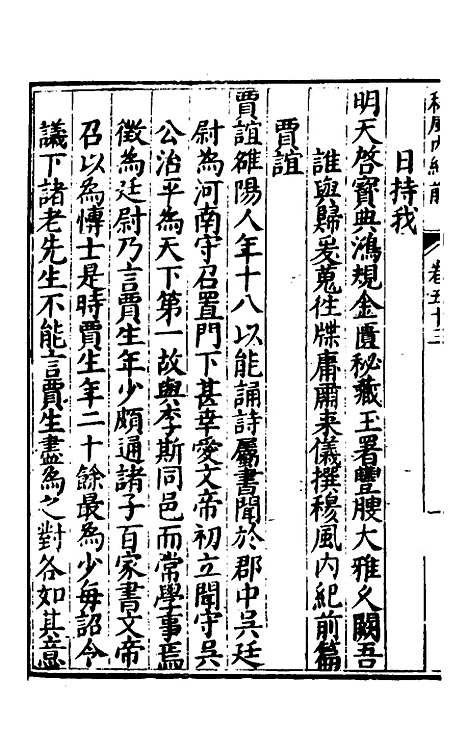 穆風內紀前 卷五十三 一
日持我
明天啓寶典鴻規金匱秘藏王署豐腴大雅久闕吾
誰與歸爰蒐往牒庸爾來儀撰穆風內紀前篇
賈誼
賈誼雒陽人年十八以能誦詩屬書聞於郡中吳廷
尉為河南守召置門下甚幸愛文帝初立聞守吳
公治平為天下第一故與李斯同邑而常學事焉
徵為廷尉乃言賈生年少頗通諸子百家書文帝
召以為博士是時賈生年二十餘最為少每詔令
議下諸老先生不能言賈生盡為之對各如其意